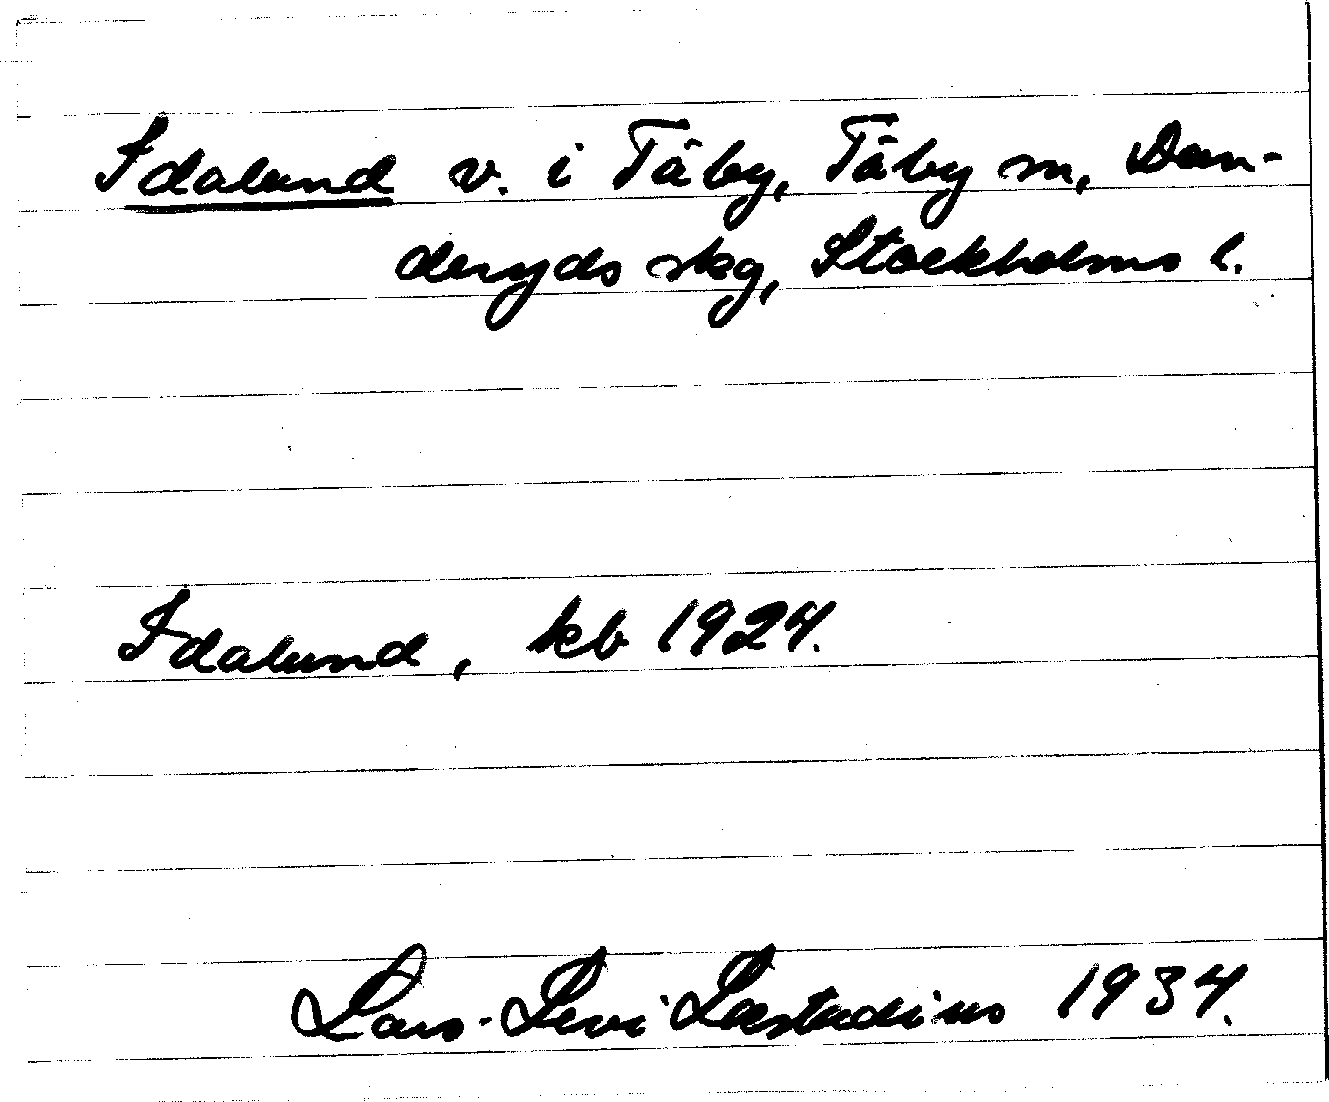 Idalund v. i Täby, Täby sn, Dan-
deryds skg, Stockholms l.
Idalund, kb 1924.
Lars-Levi Læstadius 1934.